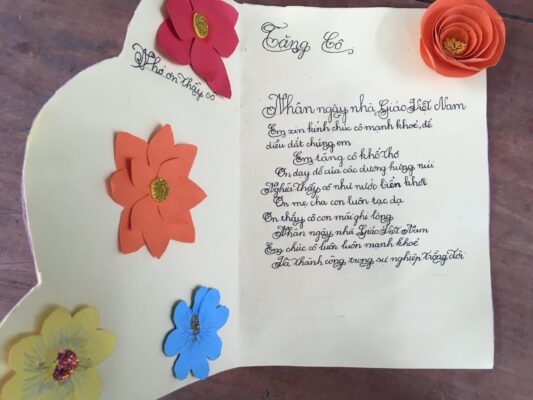 Nhớ ơn thầy cô
Tặng Cô
Nhân ngày nhà Giáo Việt Nam
Em xin kính chúc cô mạnh khoẻ, để
dìu dắt chúng em
Em tặng cô khổ thơ
Ơn dạy dỗ của các dương hưng núi
Nghĩa thầy cô như nước biển khơi
Ơn mẹ cha con luôn tạc dạ
Ơn thầy cô con mãi ghi lòng
Nhân ngày nhà Giáo Việt Nam
Em chúc cô luôn luôn mạnh khoẻ
Và thành công trong sự nghiệp trồng đời